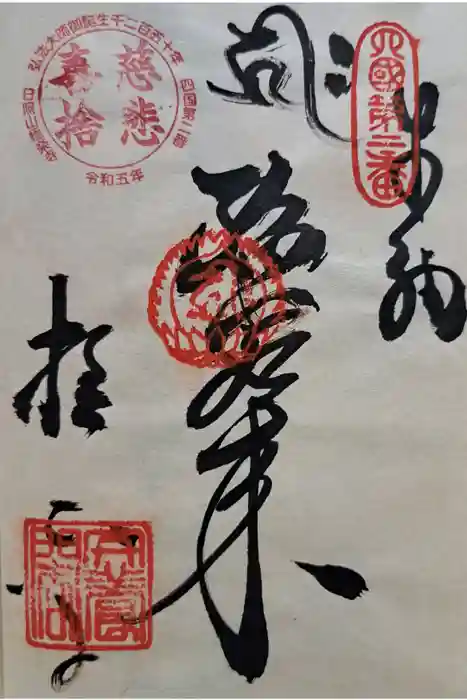 四國第二番
奉納
阿弥陀如来
極楽寺
弘法大師御誕生千二百五十年
四国第二番
日照山極楽寺
令和五年
慈悲
喜捨